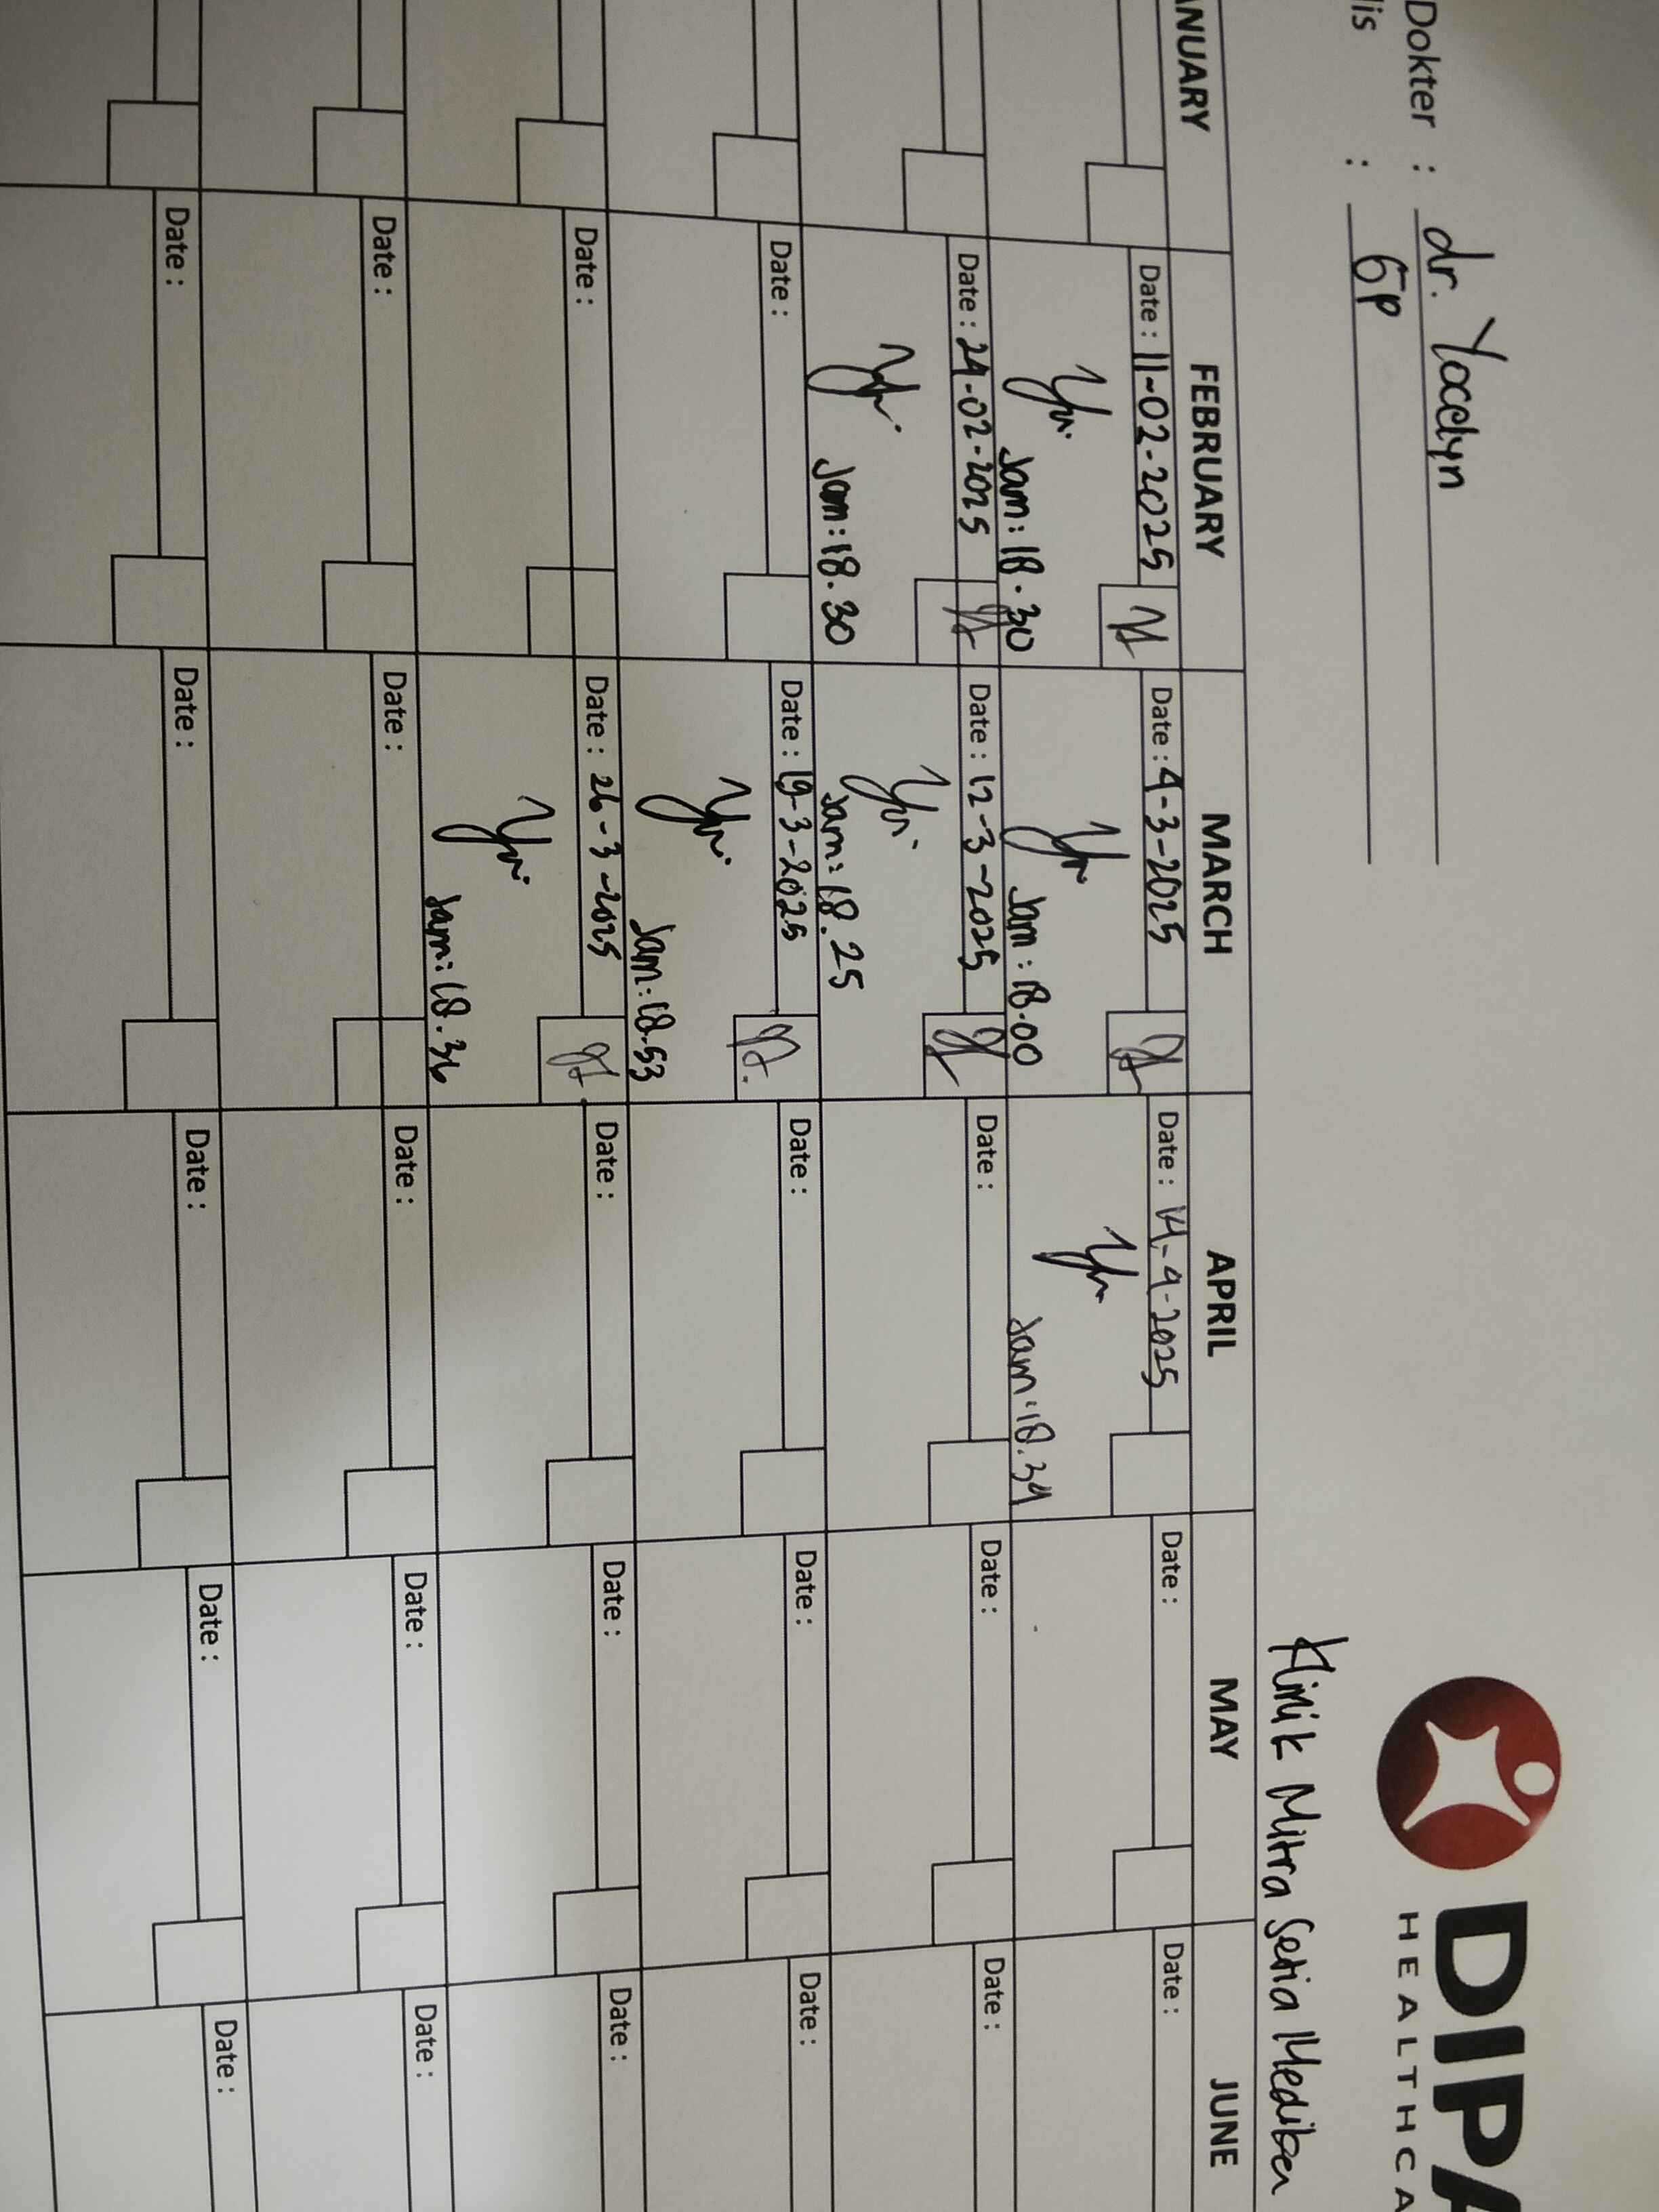 Dokter : dr. Yocelyn
lis : GP
DIPA
HEALTHCA
Klinik Mitra Setia Mediber
ANUARY FEBRUARY MARCH APRIL MAY JUNE
Date : 11-02-2025 Date : 4-3-2025 Date : 14-4-2025 Date : Date :
Jam : 18.30 Jam : 18.00 Jam : 18.34
Date : 24-02-2025 Date : 12-3-2025 Date : Date : Date :
Jam : 18.30 Jam : 18.25
Date : Date : 19-3-2025 Date : Date : Date :
Jam : 18.53
Date : Date : 26-3-2025 Date : Date : Date :
Jam : 18.36
Date : Date : Date : Date : Date :
Date : Date : Date : Date : Date :